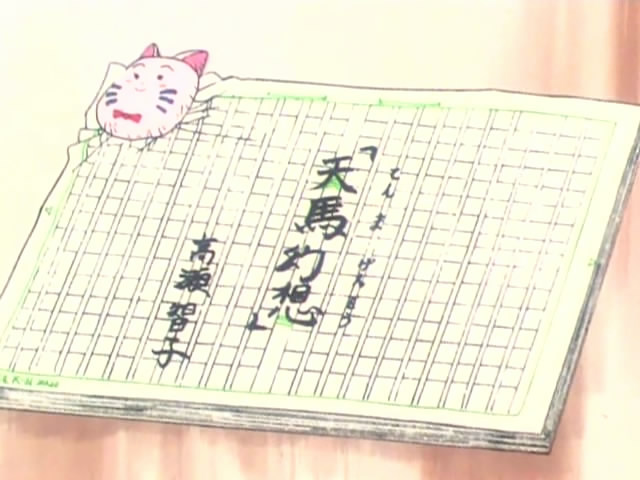 『天馬幻想』
てんまげんそう
高瀬智子